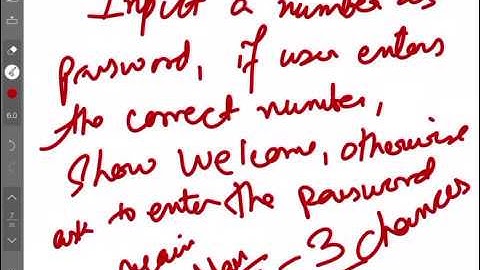 Input a number as
Password, if user enters
the correct number,
Show Welcome, otherwise
ask to enter the password
again
3 chances
6.0
7